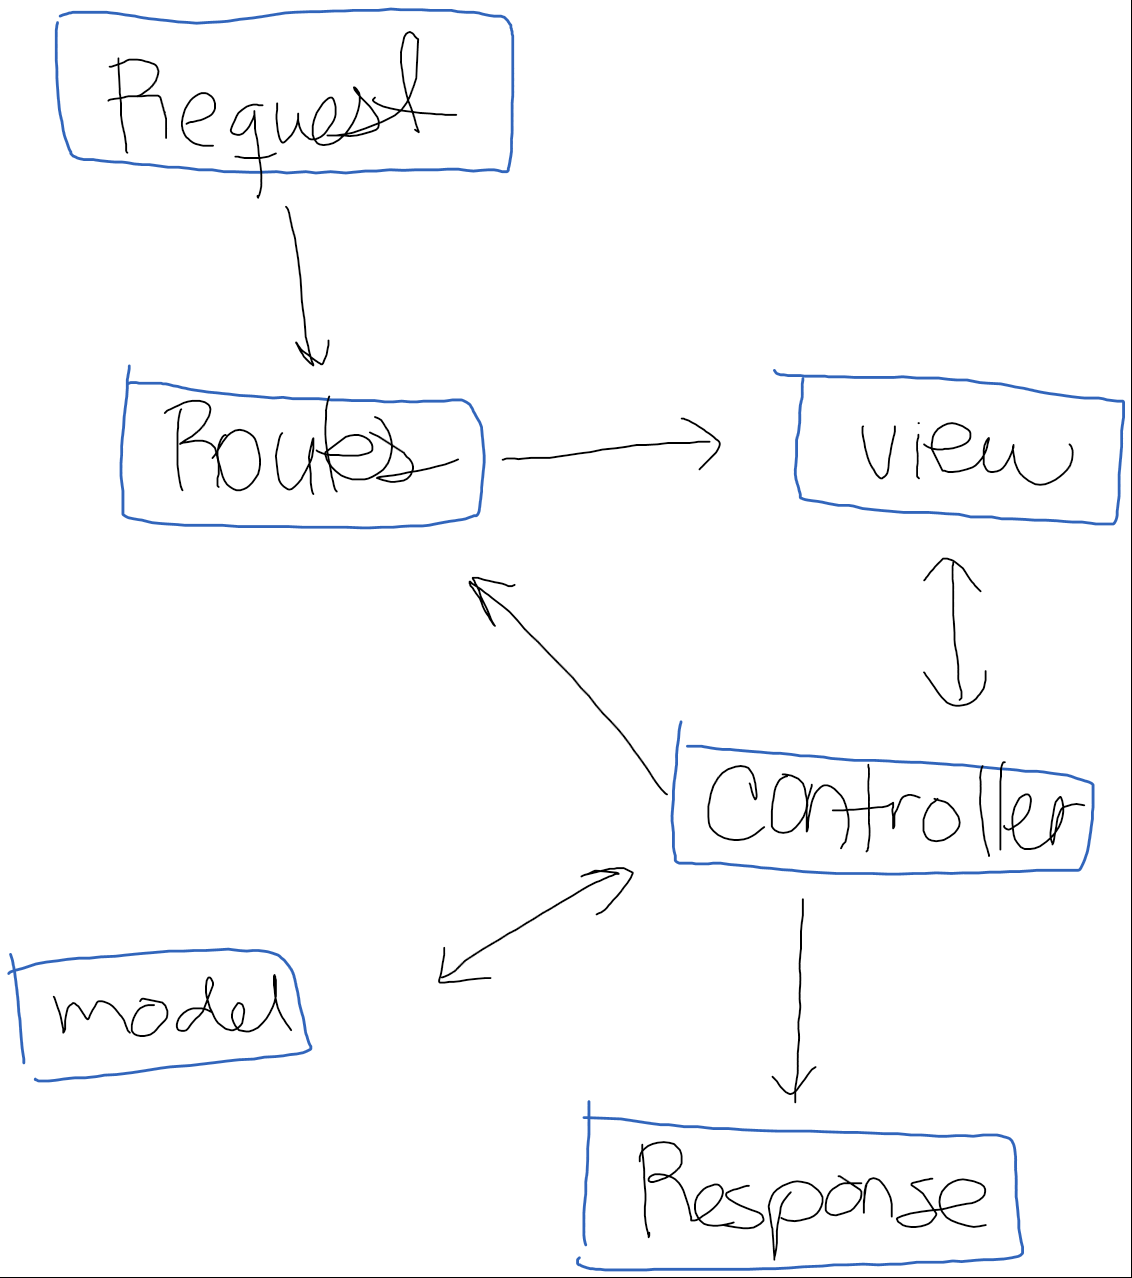 Request
Routes
view
controller
model
Response